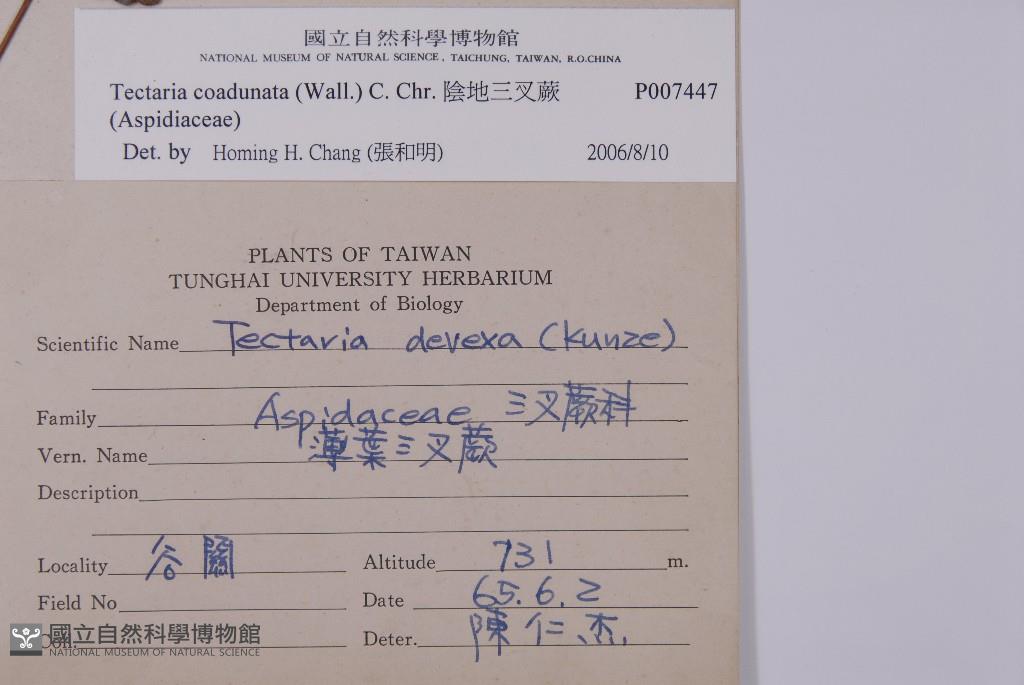 國立自然科學博物館
NATIONAL MUSEUM OF NATURAL SCIENCE, TAICHUNG, TAIWAN, R.O.CHINA
Tectaria coadunata (Wall.) C. Chr. 陰地三叉蕨 P007447
(Aspidiaceae)
Det. by Homing H. Chang (張和明) 2006/8/10
PLANTS OF TAIWAN
TUNGHAI UNIVERSITY HERBARIUM
Department of Biology
Scientific Name Tectaria devexa (Kunze)
Family Aspidaceae 三叉蕨科
Vern. Name 薄葉三叉蕨
Description
Locality 谷關 Altitude 731 m.
Field No Date 65.6.2
Deter. 陳仁杰.
國立自然科學博物館
NATIONAL MUSEUM OF NATURAL SCIENCE